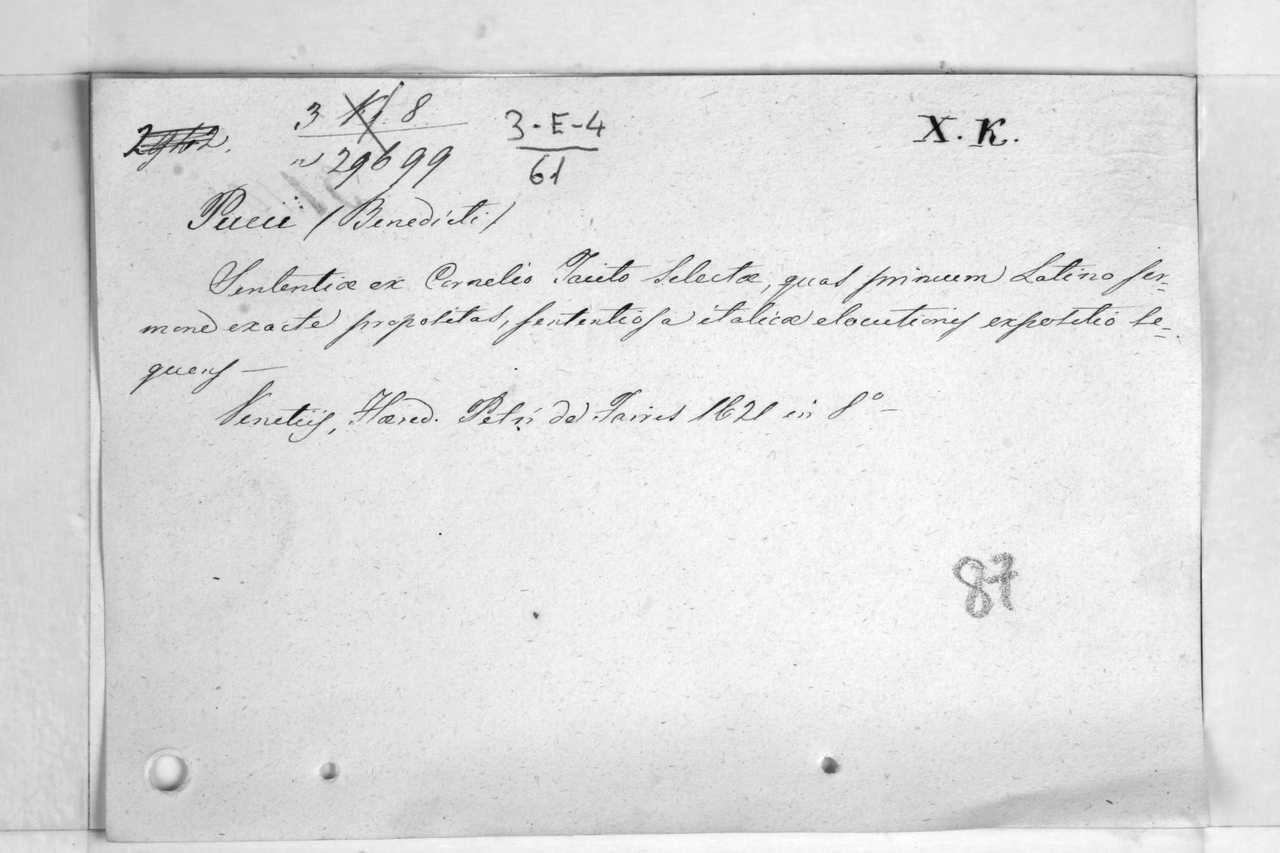 3 8
n 29699
3-E-4
61
X. K.
Pucii (Benedicti)
Sententiæ ex Cornelio Tacito Selectæ, quas primum Latino ser=
mone exacte propositas, sententiosa italicæ elocutionis expositio se=
quens —
Venetiis, Hæred. Petri de 1621 in 8º —
87